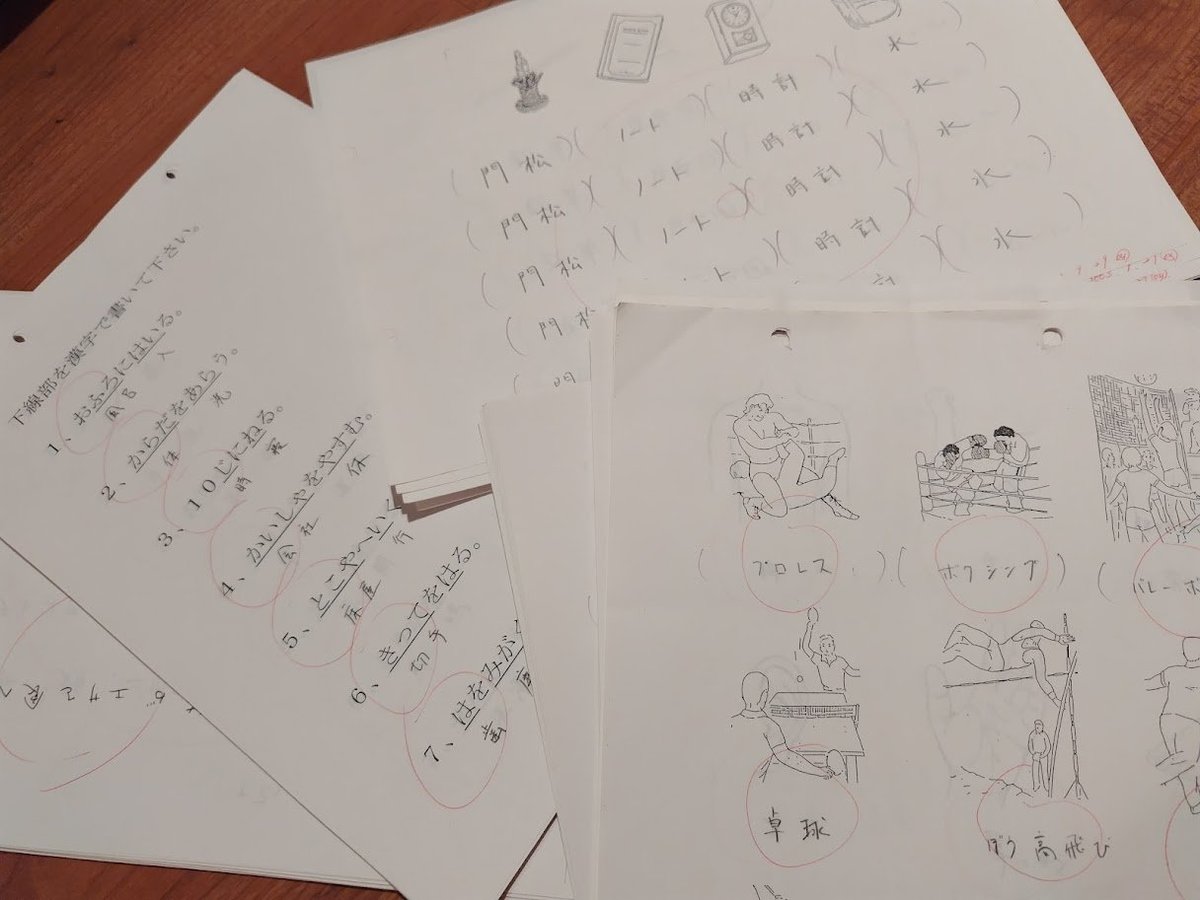 下線部を漢字で書いて下さい。
1、おふろにはいる。
風呂 入
2、からだをあらう。
体 洗
3、10じにねる。
時 寝
4、かいしゃをやすむ。
会社 休
5、とこやへい
床屋 行
6、きってをはる。
切手
7、はをみが
歯 磨
(門松)(ノート)(時計)(水)
(門松)(ノート)(時計)(水)
(門松)(ノート)(時計)(水)
(門 ート)(時計)(水)
計
(プロレス)(ボクシング)(バレーボ
卓球
ぼう高飛び